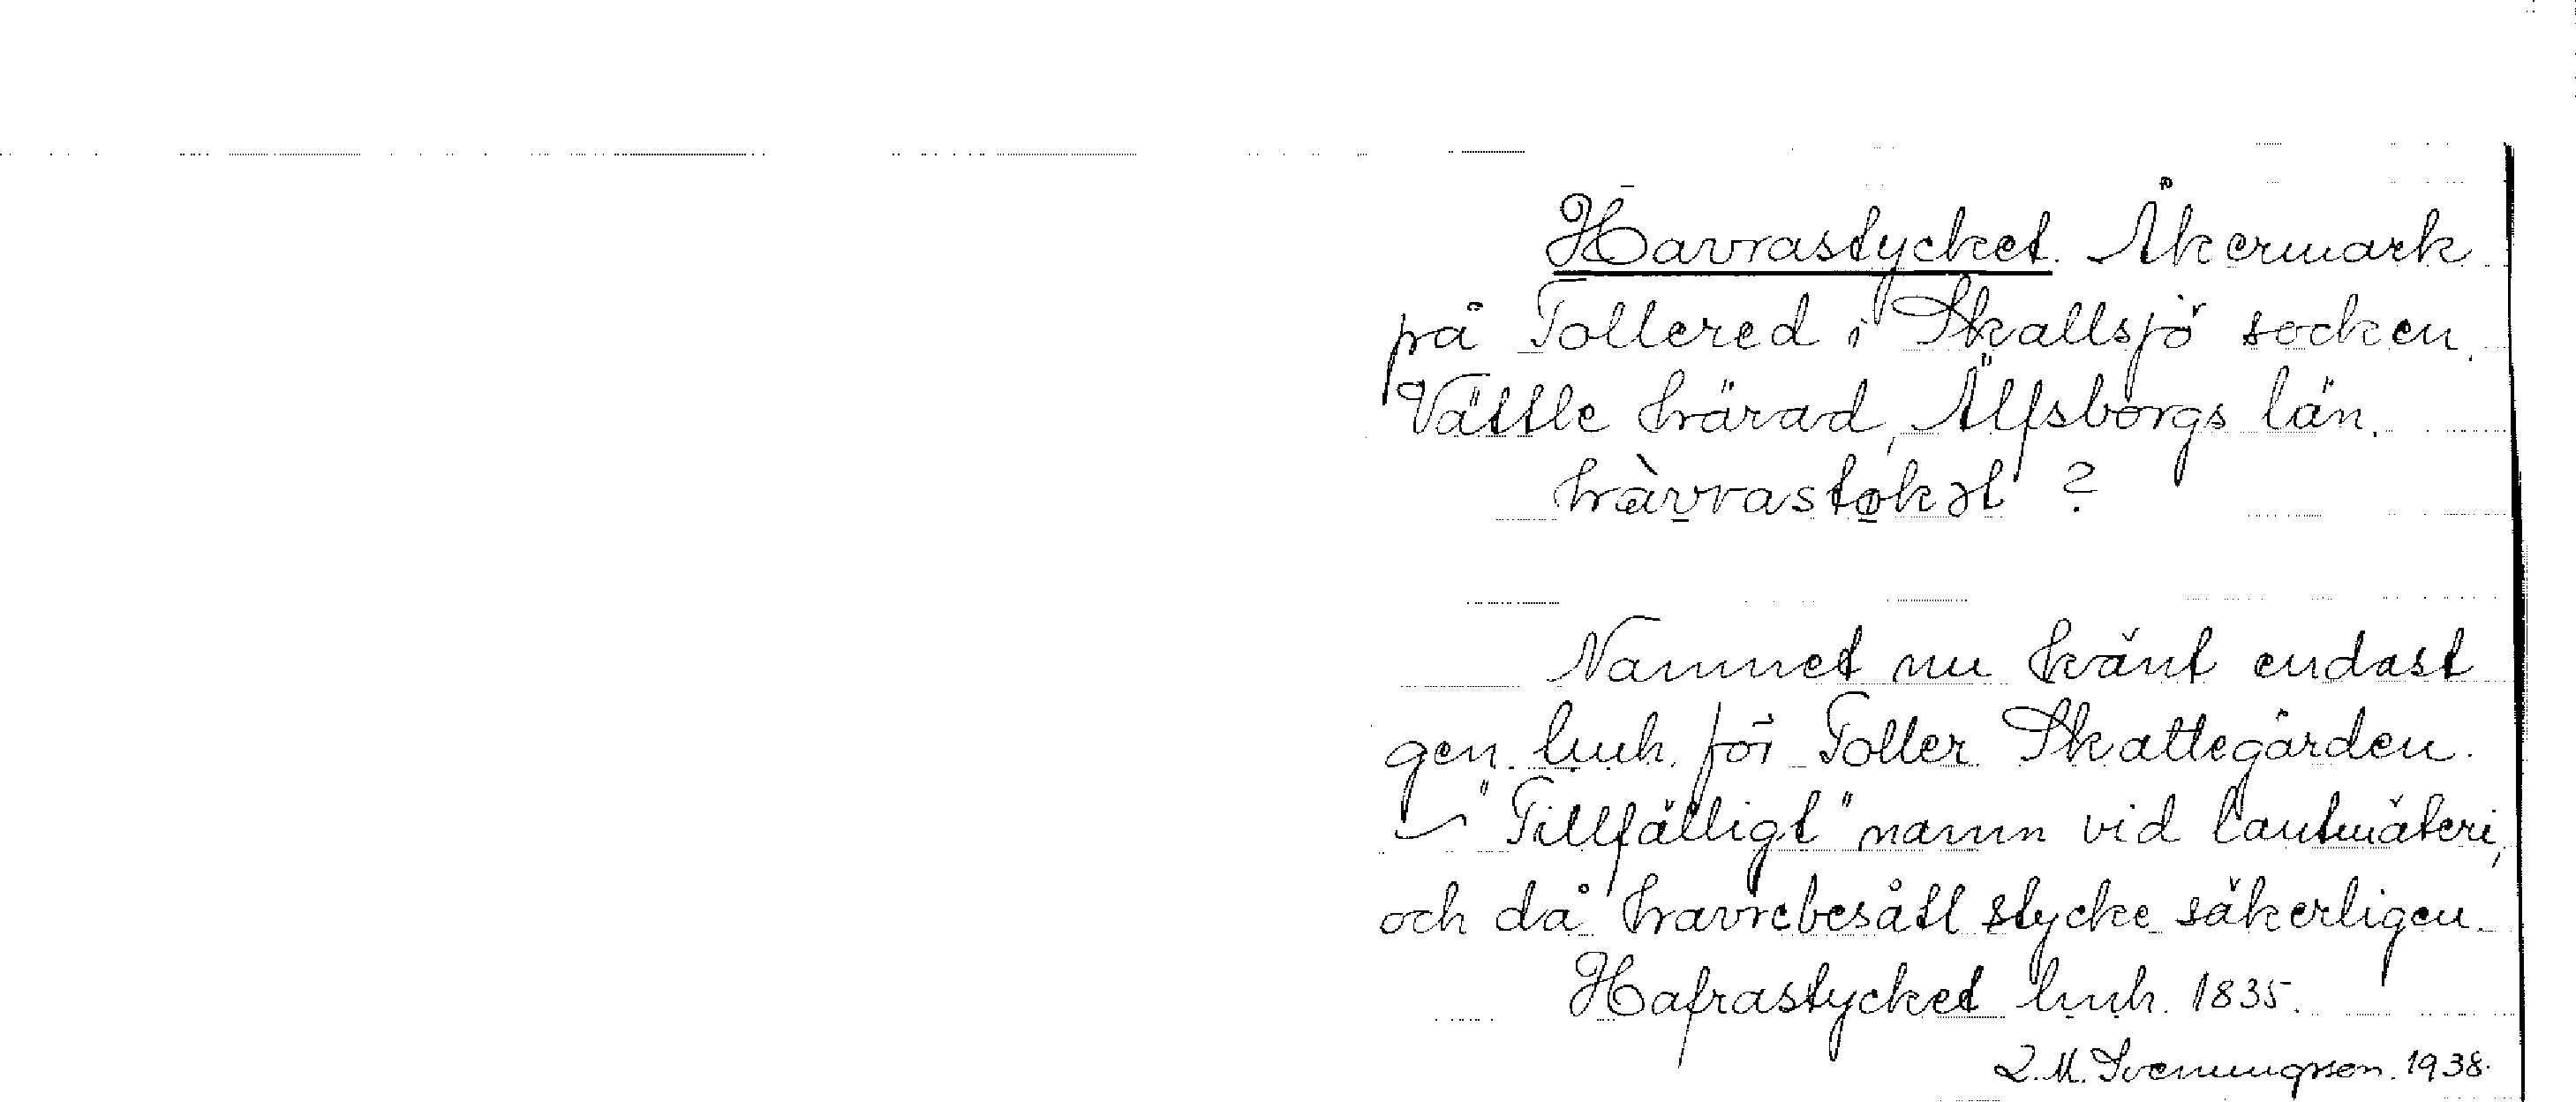 Havrastycket. Åkermark
på Tollered i Skallsjö socken,
Vättle härad, Älfsborgs län.
hàvrastøkət ?
Namnet nu känt endast
gen. lmh. för Toller. Skattegården.
– "Tillfälligt" namn vid lantmäteri,
och då havrebesått stycke säkerligen.
Hafrastycket lmh. 1835.
L. M. Svenungsson. 1938.